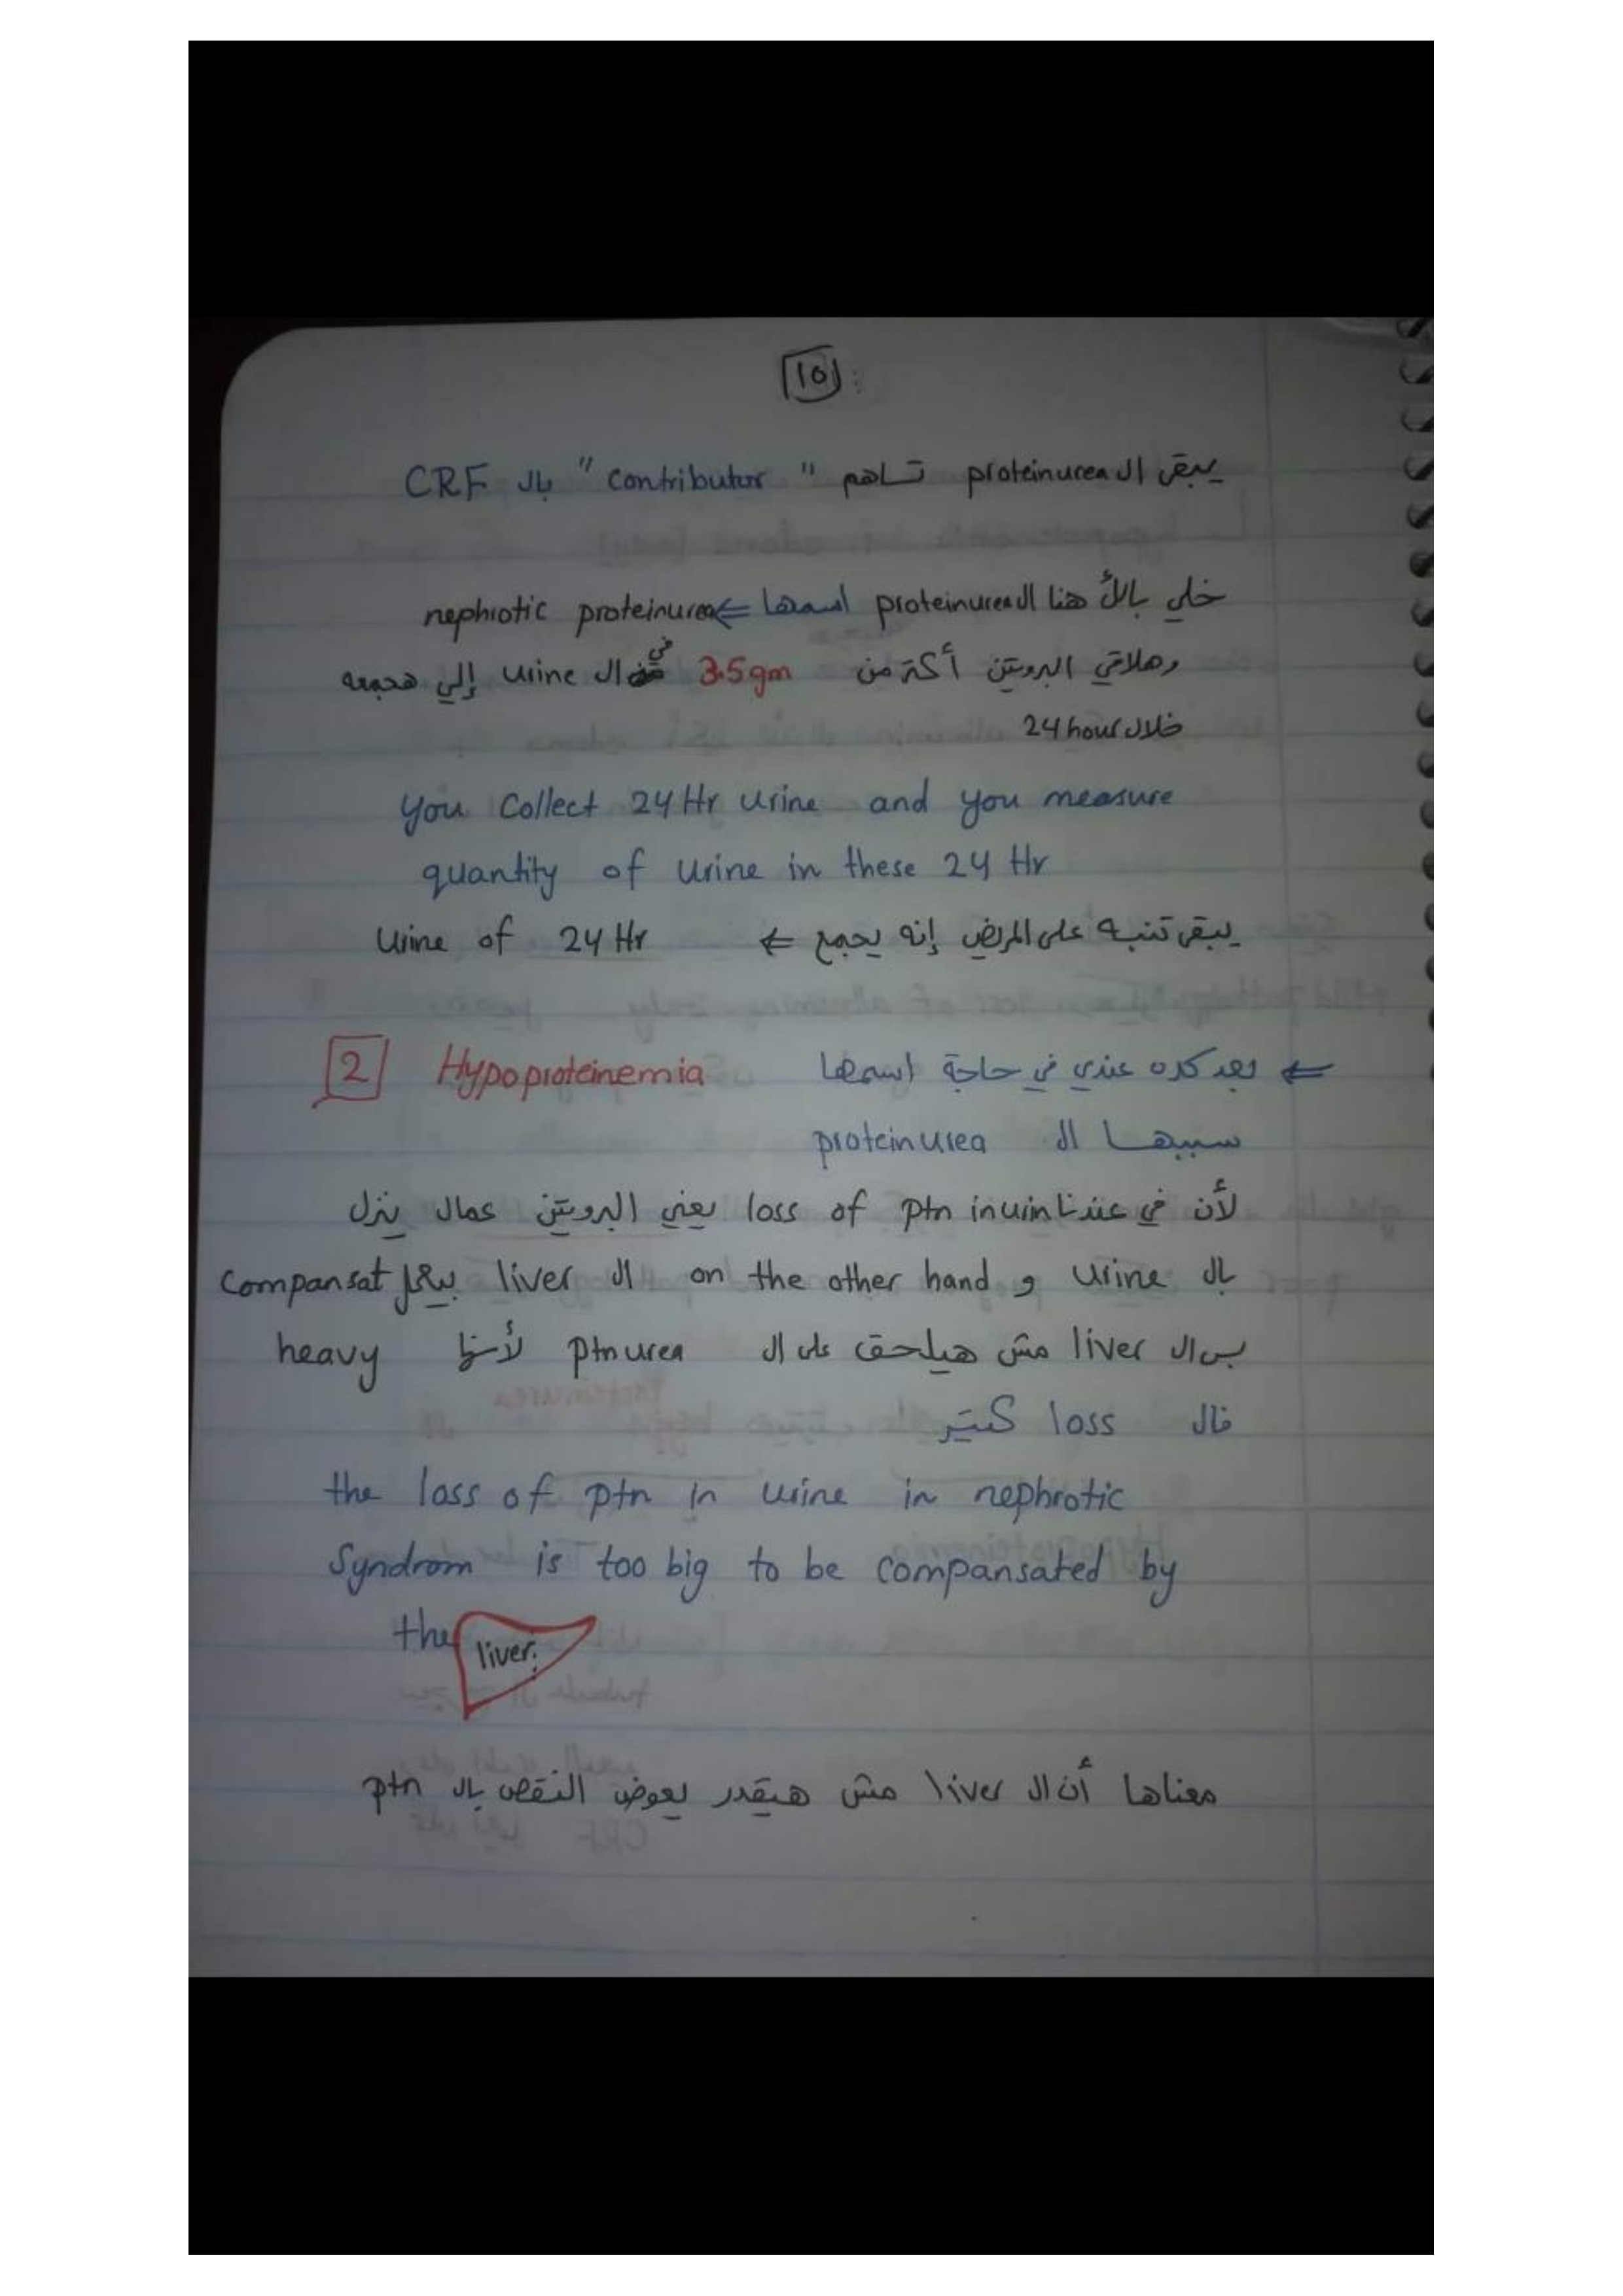 10
يبقى ال proteinurea تساهم " contributor " بال CRF
خلي بالك هنا ال proteinurea اسمها ⇐ nephrotic proteinurea
وهلاقي البروتين أكتر من 3.5gm في ال urine إلي هجمعه
خلال 24 hour
you Collect 24 Hr urine and you measure
quantity of urine in these 24 Hr
يبقى تنبه على المريض إنه يجمع ⇐ Urine of 24 Hr
⇐ بعد كده عندي في حاجة اسمها Hypoproteinemia 2
سببها ال proteinurea
لأن في عندنا loss of ptn in urin يعني البروتين عمال ينزل
بال urine و on the other hand ال liver بيعمل compansat
بس ال liver مش هيلحق على ال ptnurea لأنها heavy
فال loss كتير
the loss of ptn in urine in nephrotic
Syndrom is too big to be compansated by
the liver.
معناها أن ال liver مش هيقدر يعوض النقص بال ptn